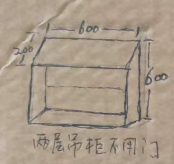 600
200
600
两层吊柜不用门